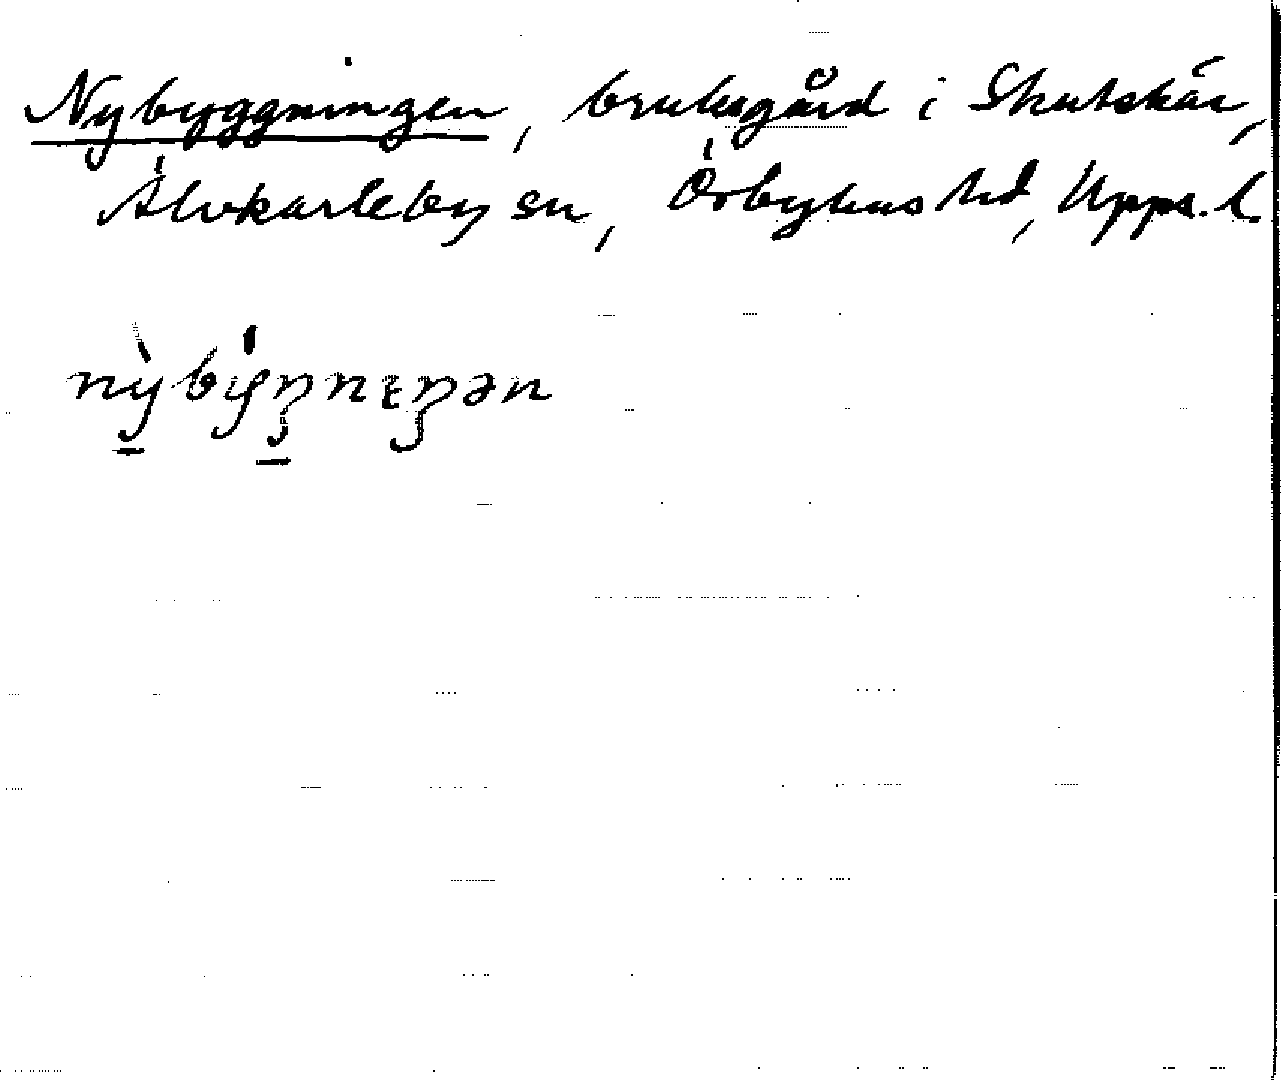 Nybyggningen, bruksgård i Skutskär,
Älvkarleby sn, Örbyhus hd, Upps. l.
nỳbýŋnıŋən